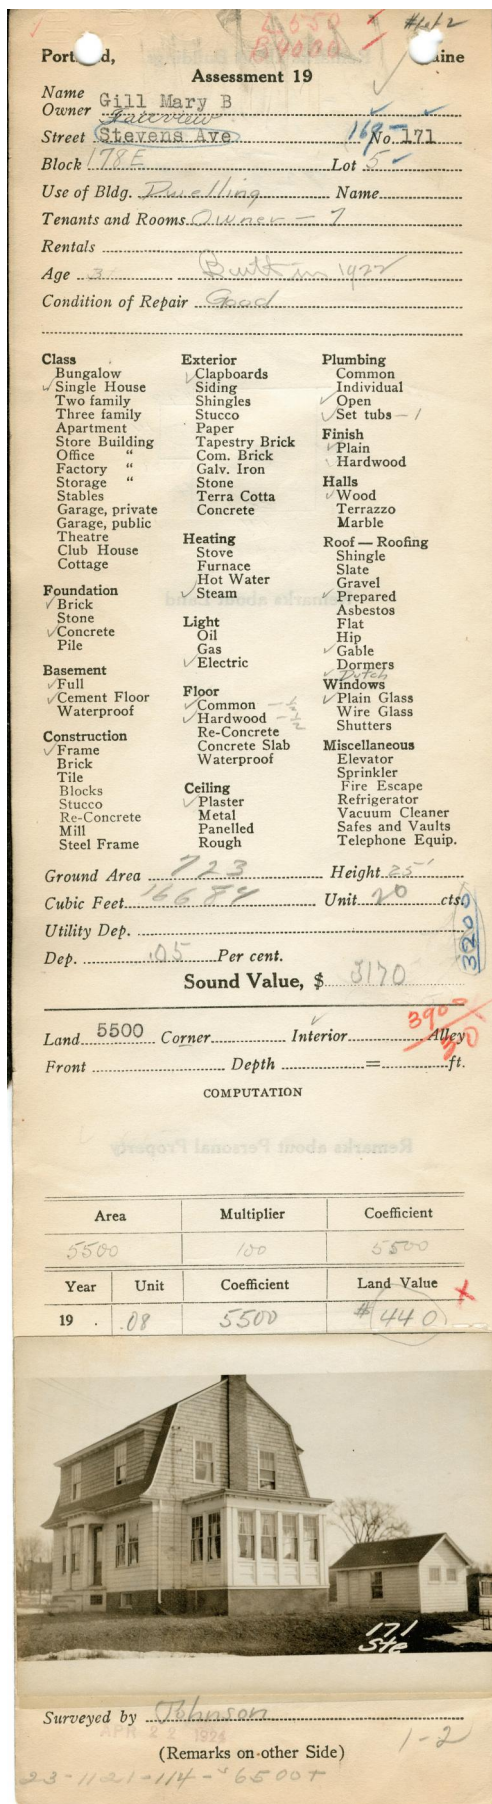 L 550 x #1 of 2
B 4000
Portland, Maine
Assessment 19
Name
Owner Gill Mary B
Street Stevens Ave 169- No. 171
Block 178E Lot 5
Use of Bldg. Dwelling Name
Tenants and Rooms Owner - 7
Rentals
Age 3 Built in 1922
Condition of Repair Good
Class
Bungalow
✓ Single House
Two family
Three family
Apartment
Store Building
Office "
Factory "
Storage "
Stables
Garage, private
Garage, public
Theatre
Club House
Cottage
Foundation
✓ Brick
Stone
✓ Concrete
Pile
Basement
✓ Full
✓ Cement Floor
Waterproof
Construction
✓ Frame
Brick
Tile
Blocks
Stucco
Re-Concrete
Mill
Steel Frame
Exterior
✓ Clapboards
Siding
Shingles
Stucco
Paper
Tapestry Brick
Com. Brick
Galv. Iron
Stone
Terra Cotta
Concrete
Heating
Stove
Furnace
Hot Water
✓ Steam
Light
Oil
Gas
✓ Electric
Floor
✓ Common - ½
✓ Hardwood - ½
Re-Concrete
Concrete Slab
Waterproof
Ceiling
✓ Plaster
Metal
Panelled
Rough
Plumbing
Common
Individual
✓ Open
✓ Set tubs - 1
Finish
✓ Plain
✓ Hardwood
Halls
✓ Wood
Terrazzo
Marble
Roof — Roofing
Shingle
Slate
Gravel
✓ Prepared
Asbestos
Flat
Hip
✓ Gable
Dormers
✓ Dutch
Windows
✓ Plain Glass
Wire Glass
Shutters
Miscellaneous
Elevator
Sprinkler
Fire Escape
Refrigerator
Vacuum Cleaner
Safes and Vaults
Telephone Equip.
Ground Area 723 Height 25'
Cubic Feet 16684 Unit 20 cts.
Utility Dep.
Dep. .05 Per cent.
3200
Sound Value, $ 3170
Land 5500 Corner Interior Alley
Front Depth = ft.
COMPUTATION
Area Multiplier Coefficient
5500 100 5500
Year Unit Coefficient Land Value
19 . .08 5500 $440
171
Ste
Surveyed by Johnson
APR 22 1924
(Remarks on other Side) 1-2